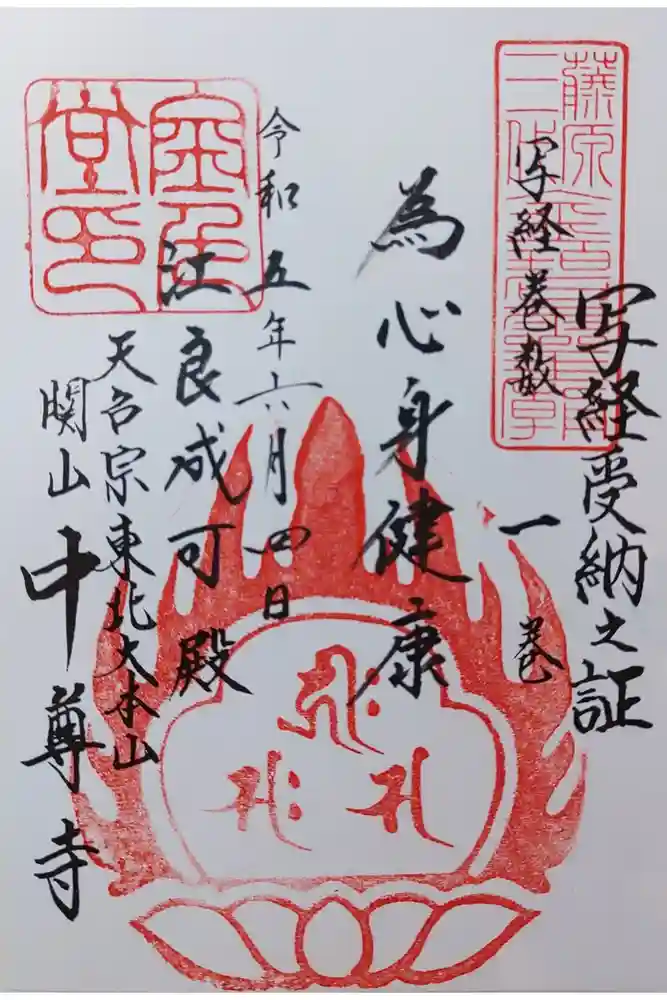 写経受納之証
写経巻数
一巻
為心身健康
令和五年六月四日
江良成可殿
天台宗東北大本山
関山
中尊寺
金色
堂印
藤原
三代